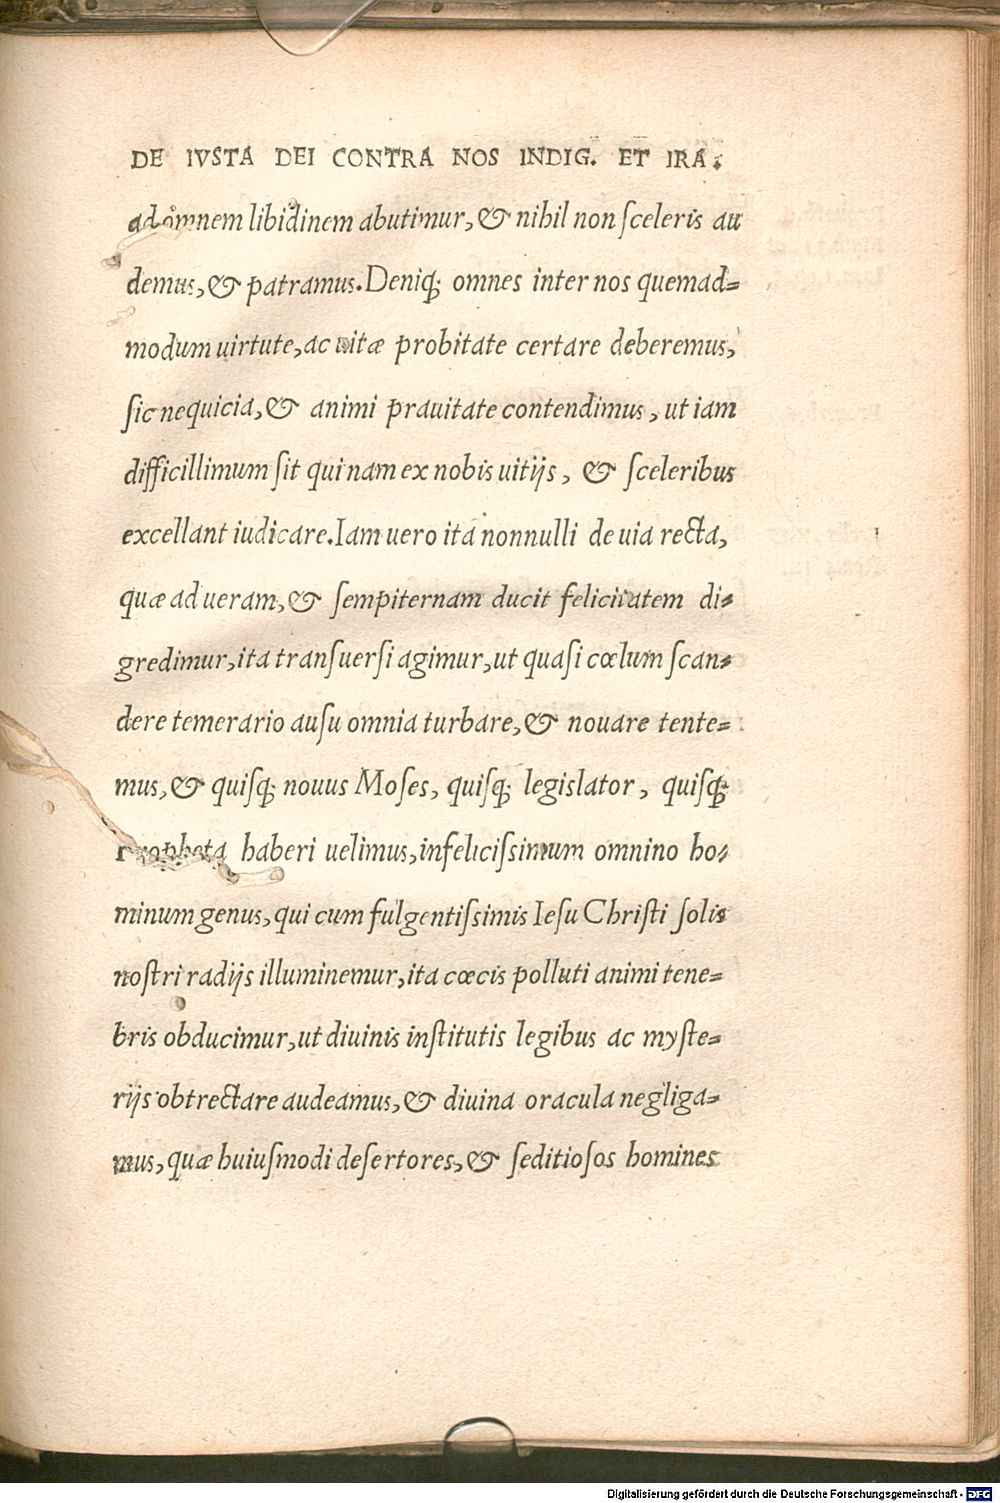 DE IVSTA DEI CONTRA NOS INDIG. ET IRA.
ad omnem libidinem abutimur, & nihil non ſceleris au
demus, & patramus. Deniq; omnes inter nos quemad=
modum uirtute, ac uitæ probitate certare deberemus,
ſic nequicia, & animi prauitate contendimus, ut iam
difficillimum ſit qui nam ex nobis uitijs, & ſceleribus
excellant iudicare. Iam uero ita nonnulli de uia recta,
quæ ad ueram, & ſempiternam ducit felicitatem di=
gredimur, ita tranſuerſi agimur, ut quaſi cœlum ſcan=
dere temerario auſu omnia turbare, & nouare tente=
mus, & quiſq; nouus Moſes, quiſq; legislator, quiſq;
propheta haberi uelimus, infeliciſsimum omnino ho=
minum genus, qui cum fulgentiſsimis Ieſu Chriſti ſolis
noſtri radijs illuminemur, ita cœcis polluti animi tene=
bris obducimur, ut diuinis inſtitutis legibus ac myſte=
rijs obtrectare audeamus, & diuina oracula negliga=
mus, quæ huiuſmodi deſertores, & ſeditioſos homines
Digitalisierung gefördert durch die Deutsche Forschungsgemeinschaft - DFG